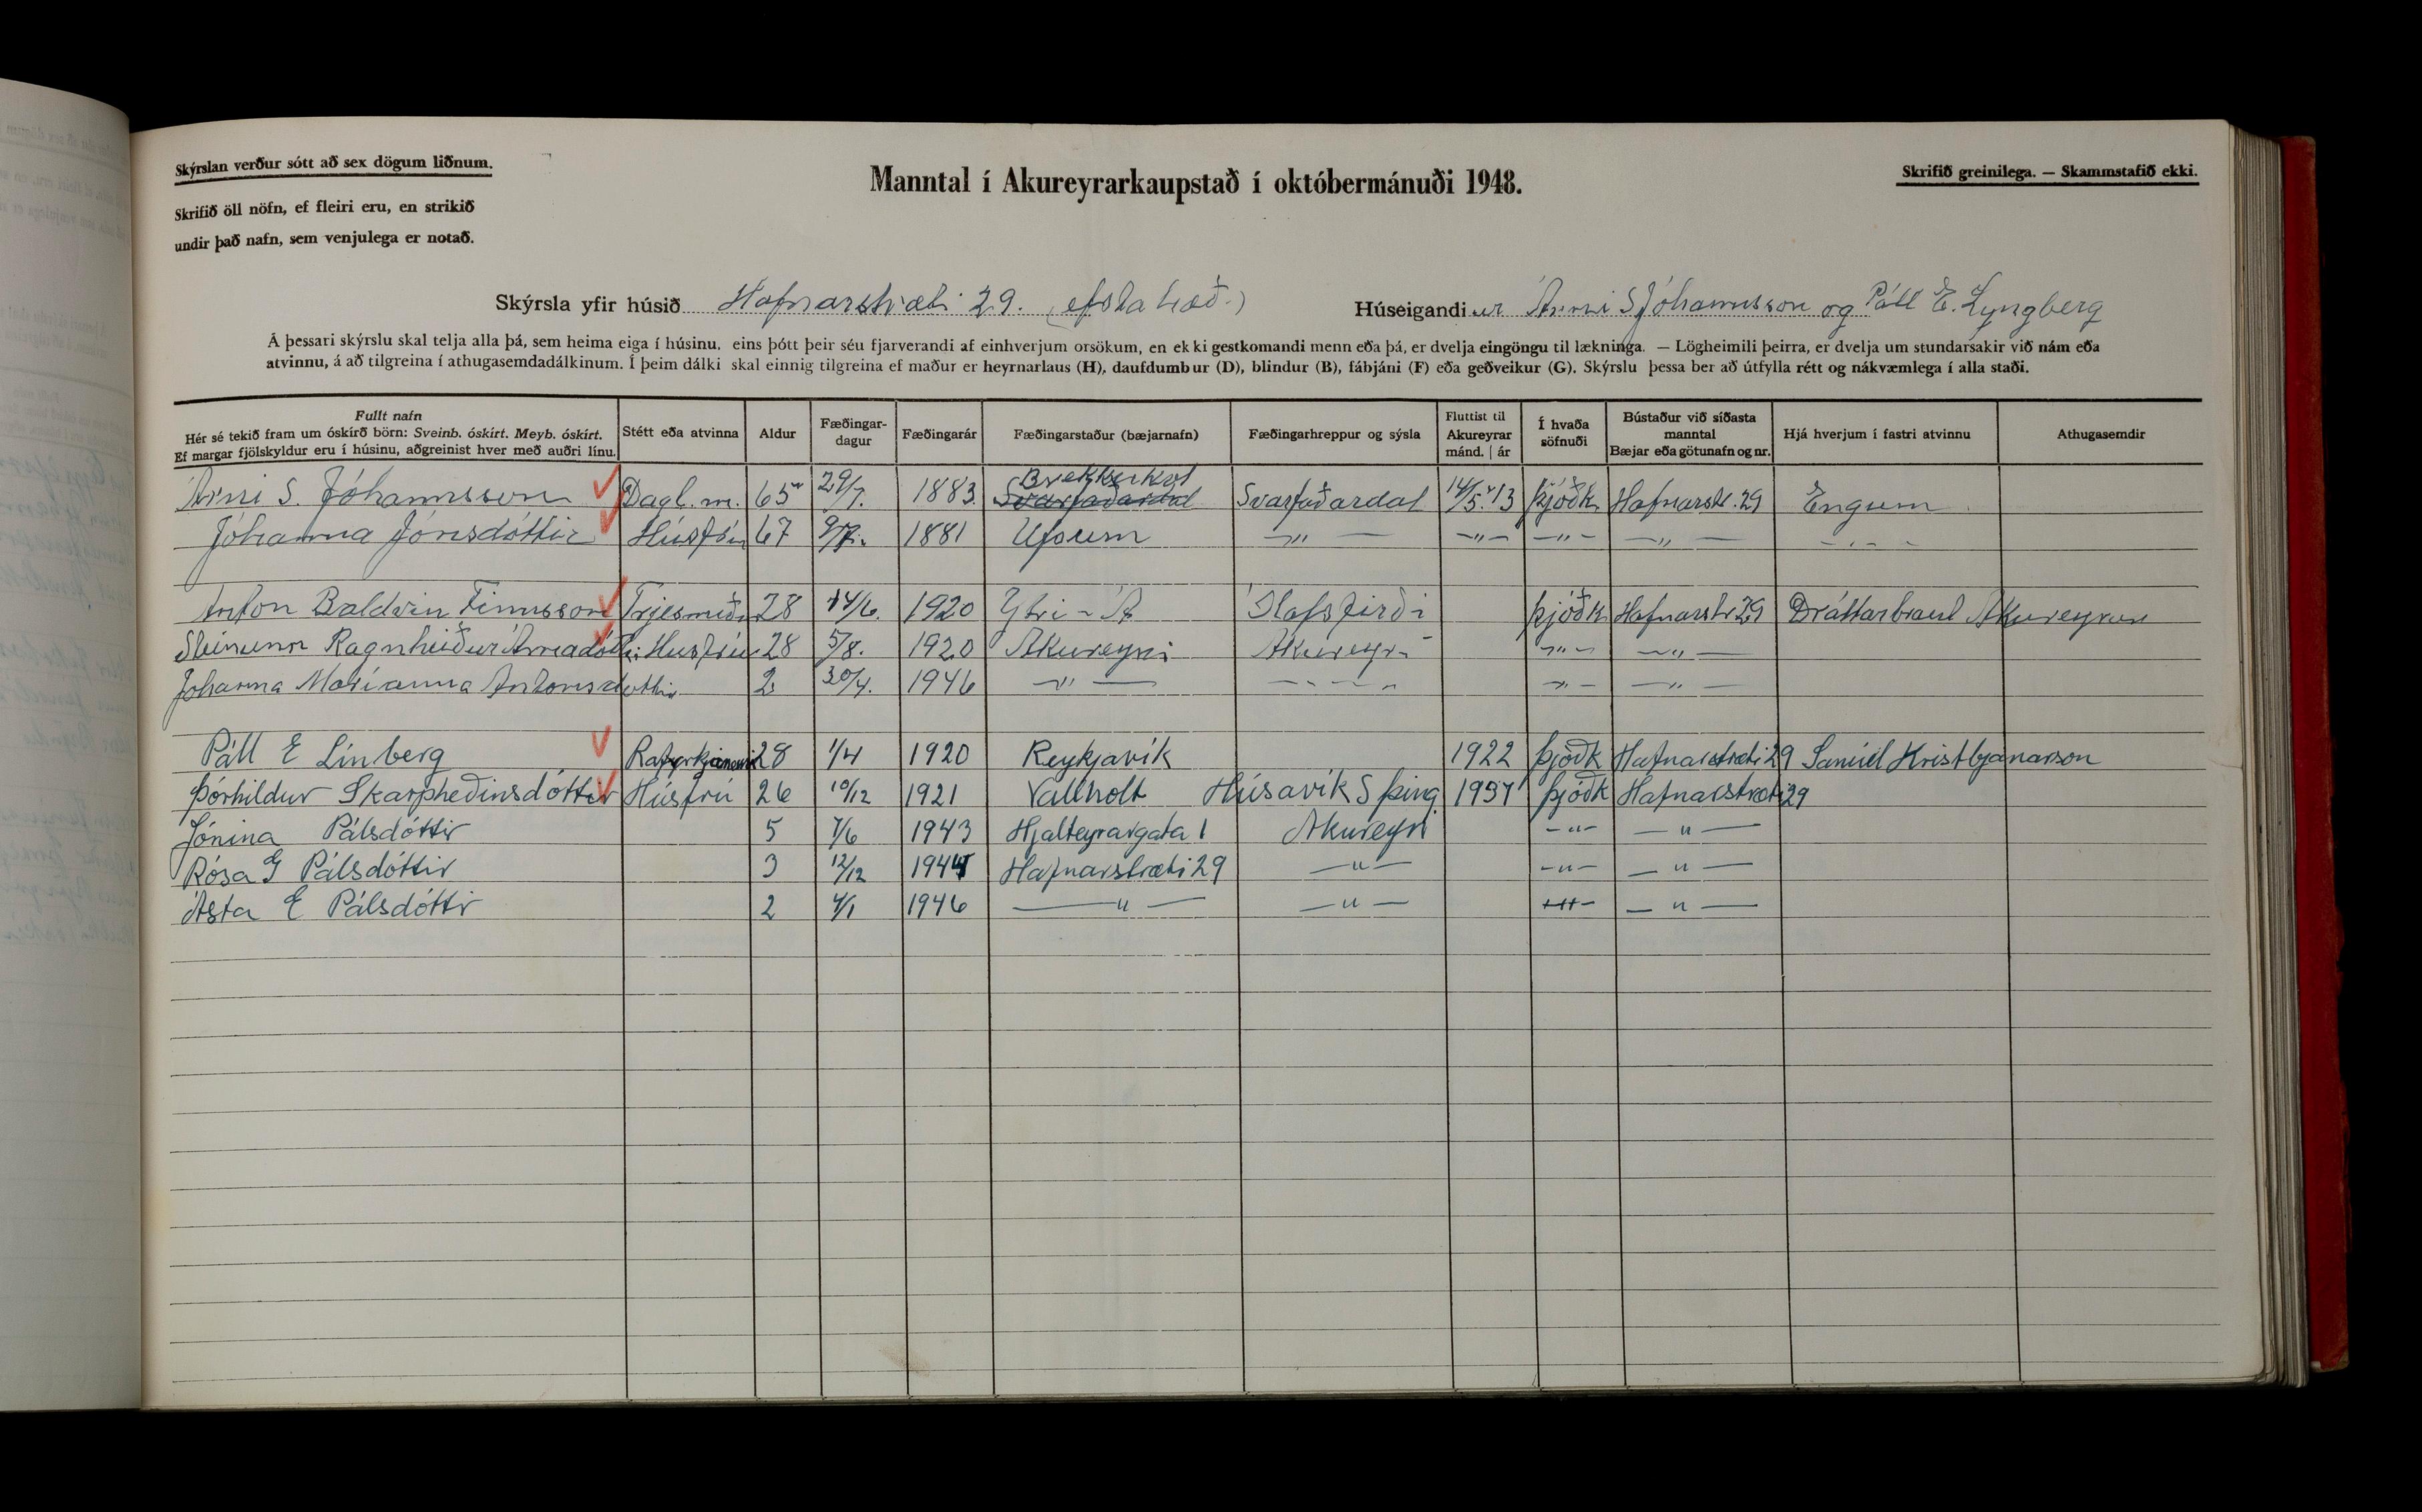 Skýrslan verður sótt að sex dögum liðnum.
Skrifið öll nöfn, ef fleiri eru, en strikið
undir það nafn, sem venjulega er notað.
Manntal í Akureyrarkaupstað í októbermánuði 1948.
Skrifið greinilega. — Skammstafið ekki.
Skýrsla yfir húsið Hafnarstræti 29. (efsta hæð.) Húseigandi ur Árni S Jóhannsson og Páll E. Lyngberg
Á þessari skýrslu skal telja alla þá, sem heima eiga í húsinu, eins þótt þeir séu fjarverandi af einhverjum orsökum, en ekki gestkomandi menn eða þá, er dvelja eingöngu til lækninga. — Lögheimili þeirra, er dvelja um stundarsakir við nám eða
atvinnu, á að tilgreina í athugasemdadálkinum. Í þeim dálki skal einnig tilgreina ef maður er heyrnarlaus (H), daufdumbur (D), blindur (B), fábjáni (F) eða geðveikur (G). Skýrslu þessa ber að útfylla rétt og nákvæmlega í alla staði.
Fullt nafn
Hér sé tekið fram um óskírð börn: Sveinb. óskírt. Meyb. óskírt.
Ef margar fjölskyldur eru í húsinu, aðgreinist hver með auðri línu.
Stétt eða atvinna
Aldur
Fæðingar-
dagur
Fæðingarár
Fæðingarstaður (bæjarnafn)
Fæðingarhreppur og sýsla
Fluttist til
Akureyrar
mánd. | ár
Í hvaða
söfnuði
Bústaður við síðasta
manntal
Bæjar eða götunafn og nr.
Hjá hverjum í fastri atvinnu
Athugasemdir
Brekkukot
Árni S. Jóhannsson Dagl. m. 65 29/7. 1883. Svarfaðardal Svarfaðardal 14/5. '13 Þjóðk. Hafnarstr. 29 Engum
Jóhanna Jónsdóttir Húsfrú 67 1881 Ufsum —"— —"— —"— —"— - " - -
Anton Baldvin Finnsson Trjesmiður 28 14/6. 1920 Ytri-Á Ólafsfirði Þjóðk Hafnarstr 29 Dráttarbraut Akureyrar
Steinunn Ragnheiður Árnadóttir Húsfrú 28 5/8. 1920 Akureyri Akureyri —"— —"—
Jóhanna Maríanna Antonsdóttir 2 30/4. 1946 —"— - - - - —"— —"—
Páll E Línberg 28 1/4 1920 Reykjavík 1922 Þjóðk Hafnarstræti 29 Samúel Kristbjanarson
Þórhildur Skarpheðinsdóttir Húsfrú 26 10/12 1921 Vallholt Húsavík S þing 1937 Þjóðk Hafnarstræti 29
Jónina Pálsdóttir 5 7/6 1943 Hjalteyrargata 1 Akureyri —"— —"—
Rósa G Pálsdóttir 3 12/12 1944 Hafnarstræti 29 —"— —"— —"—
Ásta E Pálsdóttir 2 4/1 1946 —"— —"— —"—